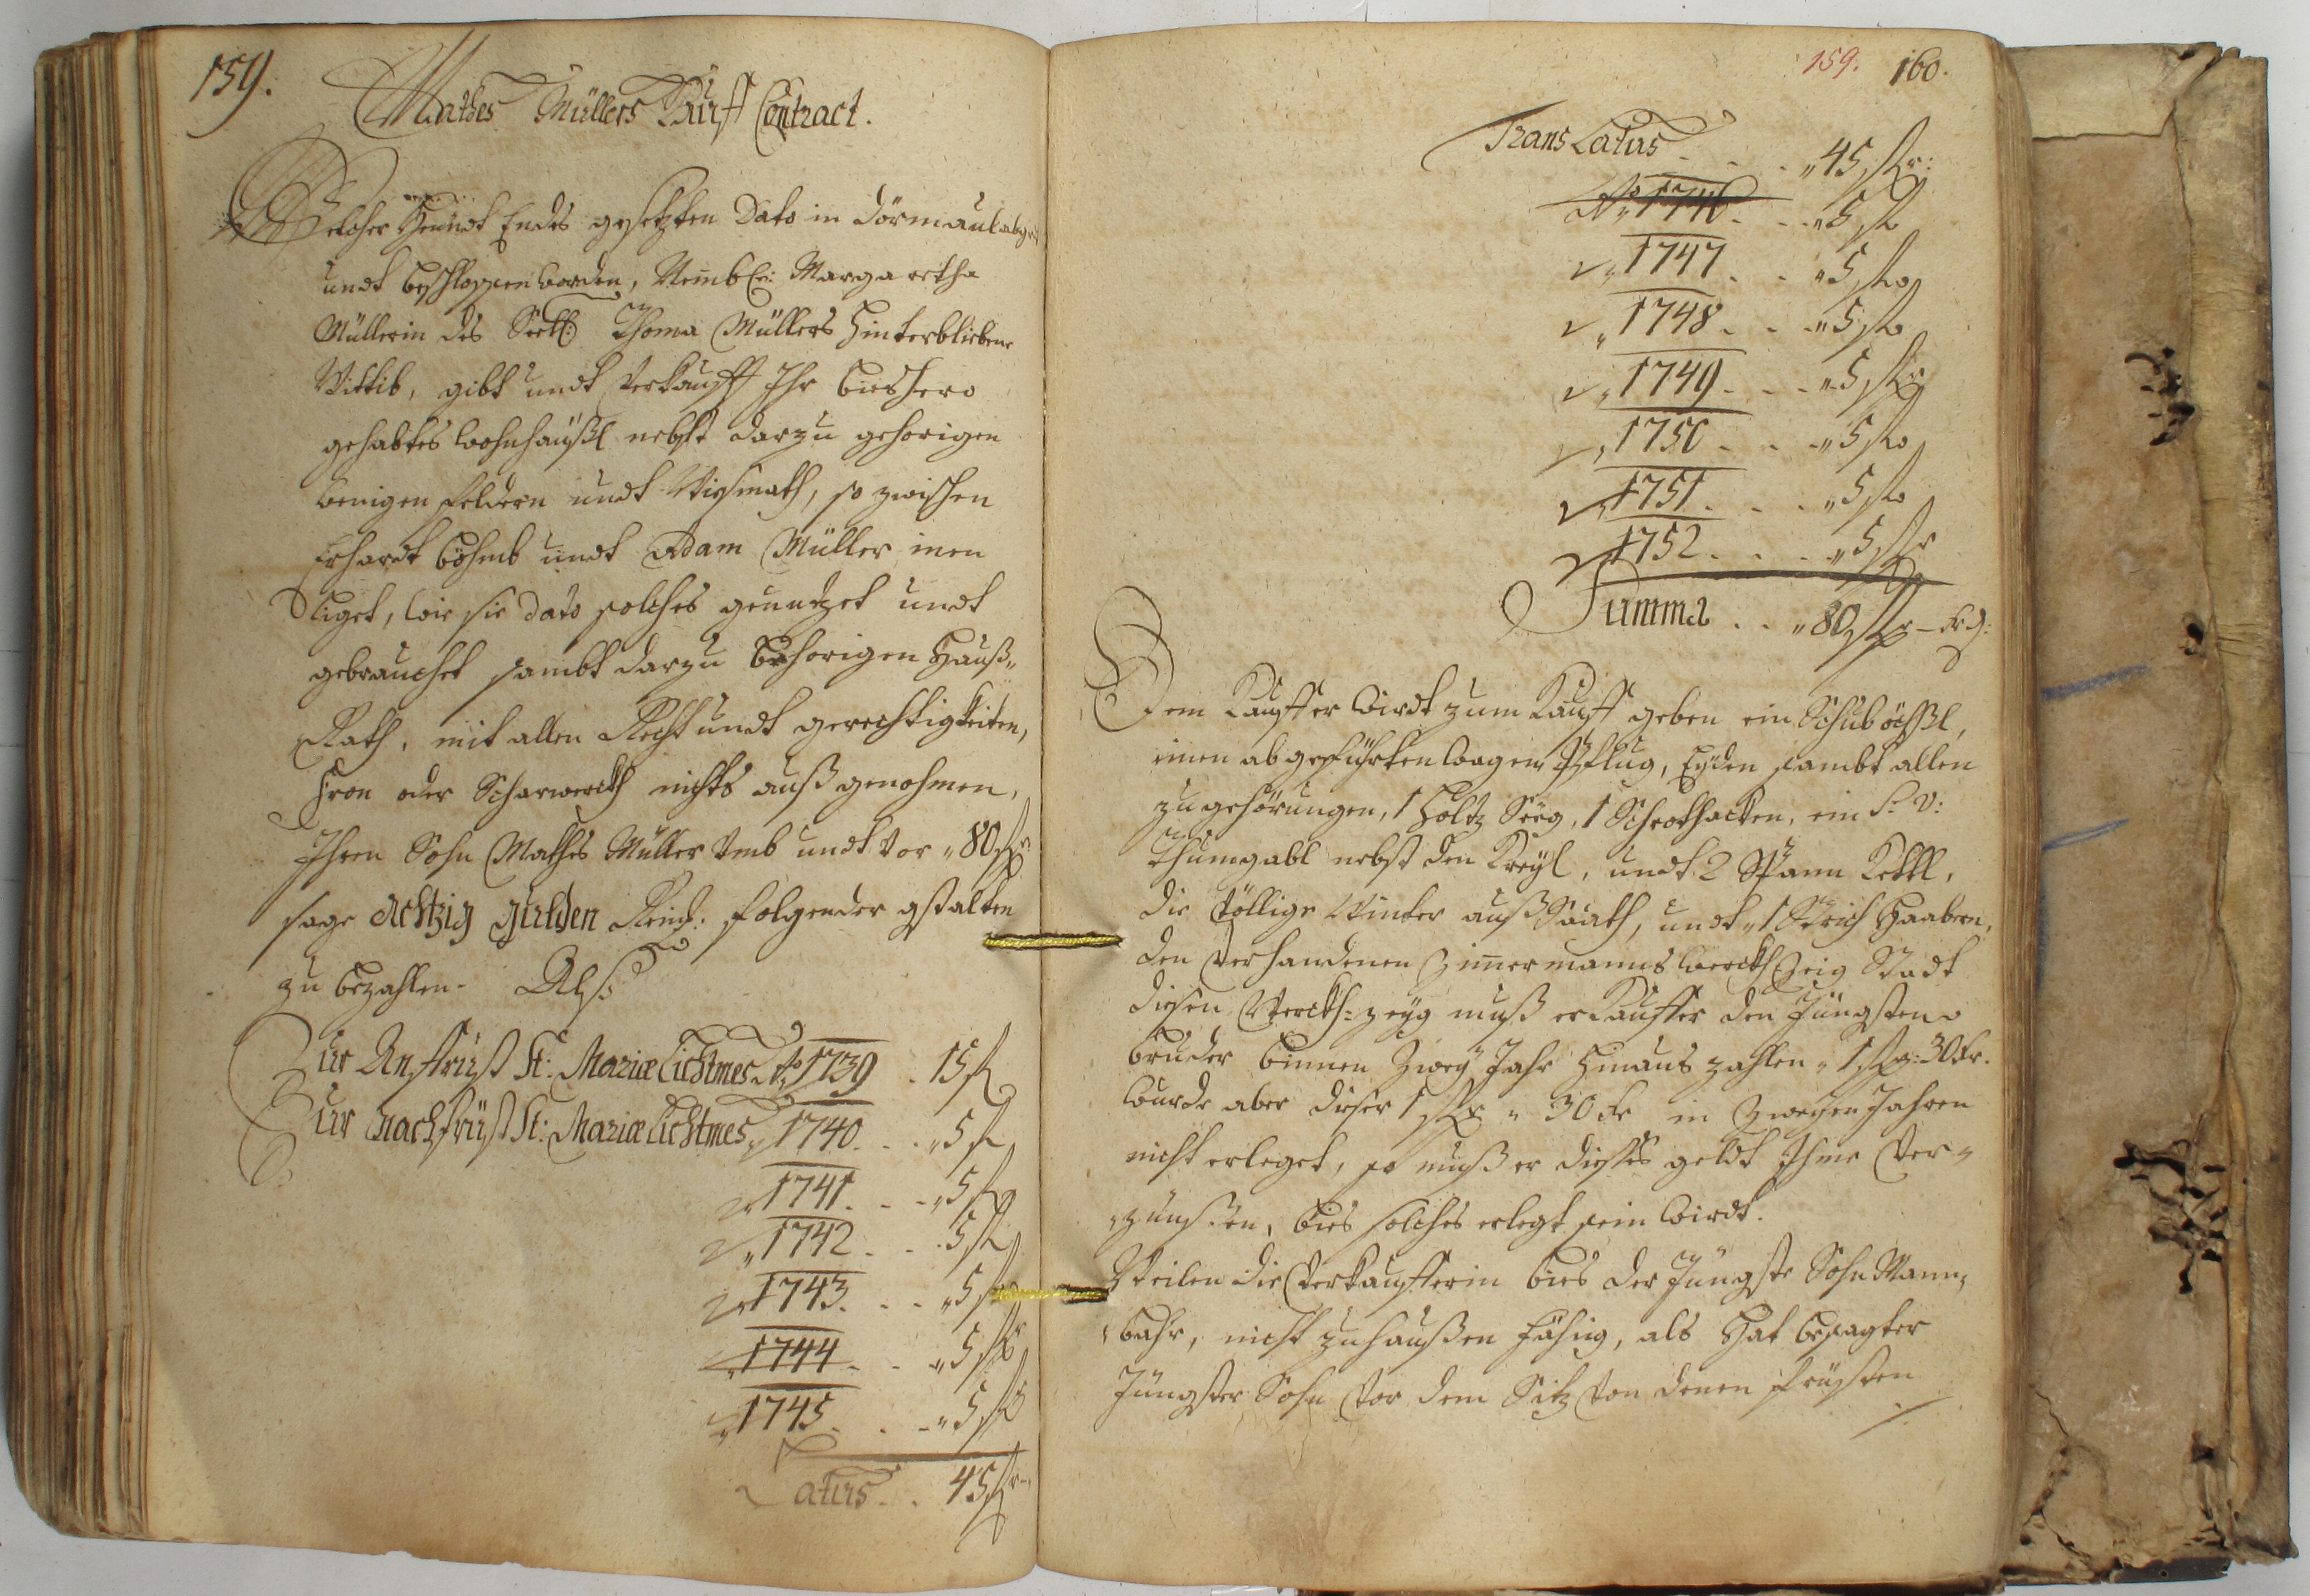 159.
Mathes Müllers Kauff Contract.
Welcher Heundt Endts gesetzten Dato in Dörmaul abgeredt
undt beschlossen worden, Nembl: Margaretha
Müllerin des Seel: Thoma Müllers hinterbliebene
Wittib, gibt undt verkaufft Ihr bieshero
gehabtes wohnhäußl nebst darzu gehorigen
wenigen feldern undt Wiesmath, so zwischen
Erhardt Böhmb undt Adam Müller inen
liget, wie sie dato solches genutzet undt
gebrauchet sambt darzu behorigen Hauß-
Rath, mit allen Recht undt gerechtigkeiten,
Fron oder Scharwerckh nichts außgenohmen,
Ihren Sohn Mathes Müller umb undt vor „80 fl:
sage Achtzig gulden Reinl: folgender gstalten
zu bezahlen. Als:
Zur Anfrüst St: Mariæ Lichtmes Aõ 1739 . 15 fl
Zur Nachfrüst St: Mariæ Lichtmes „ 1740 . . „5 fl
„ 1741 . . „5 fl
„ 1742 . . 5 fl
„ 1743 . . „5 fl
„ 1744 . . „5 fl
„ 1745 . . „5 fl
Latus . . 45 fl
159. 160.
Trans Latus . . . „45 fl:
Aõ 1746 . . „5 fl
„ 1747 . . „5 fl
„ 1748 . . „5 fl
„ 1749 . . „5 fl
„ 1750 . . „5 fl
„ 1751 . . „5 fl
„ 1752 . . „5 fl
Summa . . „80 fl – kr:
Dem Kauffer wirdt zum Kauff geben ein Schubößl,
einen abgeführten wagen, Pflug, Eyden sambt allen
zugehörungen, 1 Holtz Seeg, 1 Schrothacken, ein S: V:
Thumgabl nebst den Kreyl, undt 2 Spann Kettl,
die völlige Winter außSaath, undt „1 Strich Haabern,
den verhandenen Zimermanns Werckh Zeig Stadt
diesen Werckh-zeyg muß er Kauffer den Jüngsten
bruder binnen Zwey Jahr hinaus zahlen „1 fl: 30 kr.
wurde aber dieser 1 fl „ 30 kr in Zweyen Jahren
nicht erleget, so muß er dieses geldt Ihme ver-
zünßen, bies solches erlegt sein wirdt.
Weilen die Verkaufferin bies der Jüngste Sohn Mann-
bahr, nicht zuhaußen fähig, als hat besagter
Jüngster Sohn vor dem Sitz von denen früsten
./.